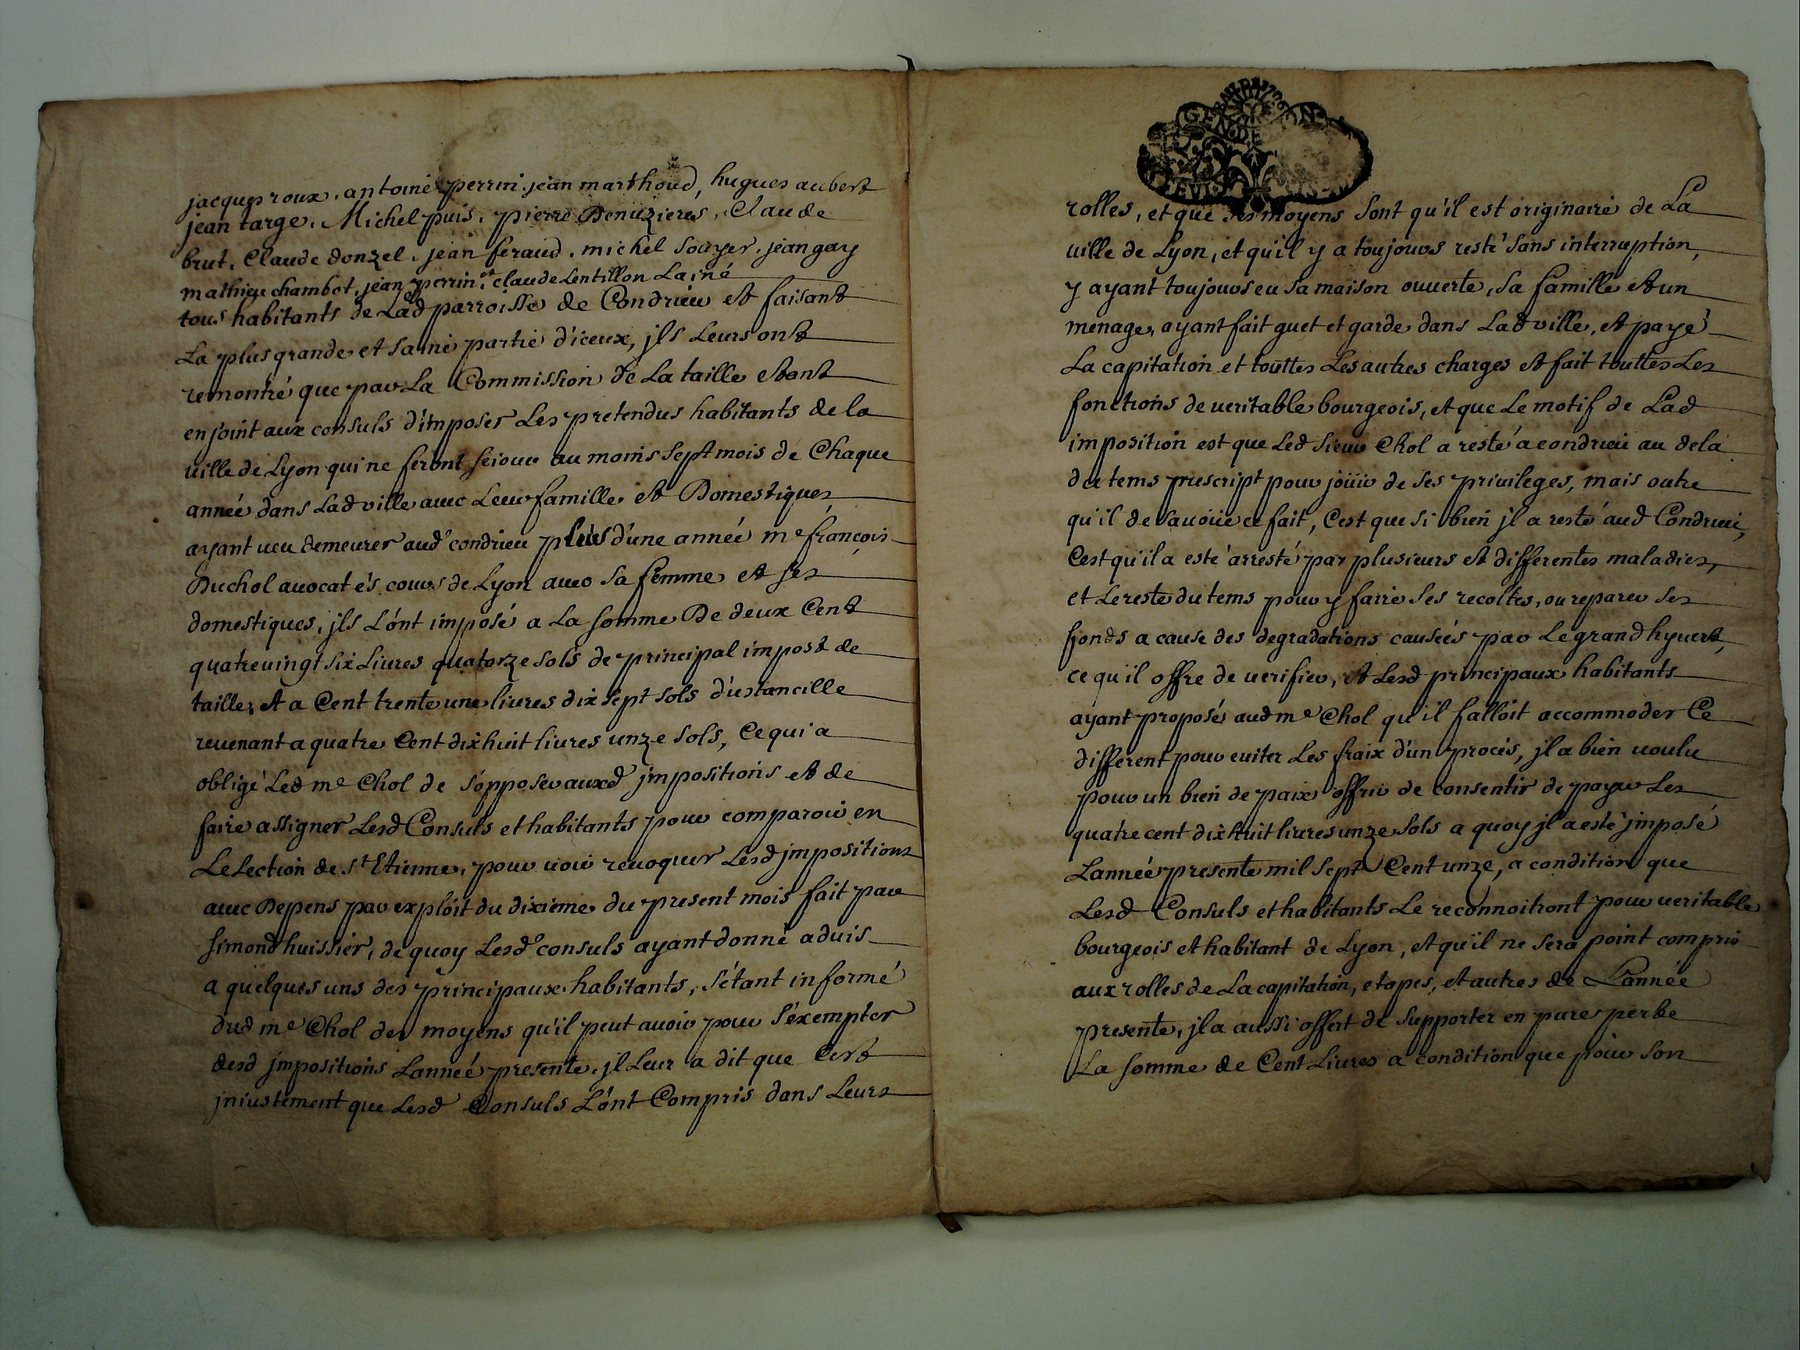 jacques roux, antoine perrin, jean marthoud, hugues aubert
jean targe, Michel puis, pierre Denuzieres, Claude
brut, Claude donzel, jean feraud, michel souyer, jean gay
mathieu chambot, jean perrin, et claude Lentillon Lainé
tous habitants de Lad parroisse de Condrieu et faisant
La plus grande et saine partie d'iceux, jls Leurs ont
remontré que par La Commission de La taille etant
enjoint aux consuls d'imposer Les pretendus habitants de la
ville de Lyon qui ne feront sejour au moins sept mois de Chaque
année dans Lad ville avec Leur famille et Domestiques
ayant veu demeurer aud condrieu plus d'une année me françois
Duchol avocat és cours de Lyon avec sa femme et ses
domestiques, jls L'ont imposé a La somme De deux Cent
quatrevingt six Livres quatorze sols de principal impost de
taille, et a Cent trente une livres dix sept sols d'ustancille
revenant a quatre Cent dixhuit livres unze sols, Ce qui a
obligé Led me Chol de s'opposer auxd jmpositions et de
faire assigner Lesd Consuls et habitants pour comparoir en
Lelection de St Etienne, pour voir revoquer Lesd jmpositions
avec Depens par exploit du dixieme du present mois fait par
simond huissier, de quoy Lesd consuls ayant donné aduis
a quelques uns des principaux habitants, s'étant informé
dud me Chol des moyens qu'il peut avoir pour s'exempter
desd jmpositions Lannéé presente, jl Leur a dit que C'est
jniustement que Lesd Consuls L'ont Compris dans Leurs
rolles, et que ses moyens sont qu'il est originaire de La
ville de Lyon, et qu'il y a toujours resté sans interruption,
y ayant toujours eu sa maison ouverte, sa famille et un
menage, ayant fait guet et garde dans Lad ville, et payé
La capitation et touttes Les autres charges et fait touttes Les
fonctions de veritable bourgeois, et que Le motif de Lad
imposition est que Led sieur Chol a resté a condrieu au dela
du tems prescript pour joüir de ses privileges, mais outre
qu'il desavoüe ce fait, C'est que si bien jl a resté aud Condrieu,
C'est qu'il a esté arresté par plusieurs et differentes maladies,
et Le reste du tems pour y faire ses recoltes, ou reparer ses
fonds a cause des degradations causéés par Le grand hyvert,
ce qu'il offre de verifier, et Lesd principaux habitants
ayant proposé aud me Chol qu'il falloit accommoder Ce
different pour eviter Les fraix d'un procés, jl a bien voulu
pour un bien de paix offrir de consentir de payer Les
quatre cent dixhuit livres unze sols a quoy jl a esté jmposé
Lannéé presente mil sept Cent unze, a condition que
Lesd Consuls et habitants Le reconnoitront pour veritable
bourgeois et habitant de Lyon, et qu'il ne sera point compris
aux rolles de La capitation, etapes, et autres de Lannéé
presente, jl a aussi offert de supporter en pure perte
La somme de Cent Livres a condition que pour son